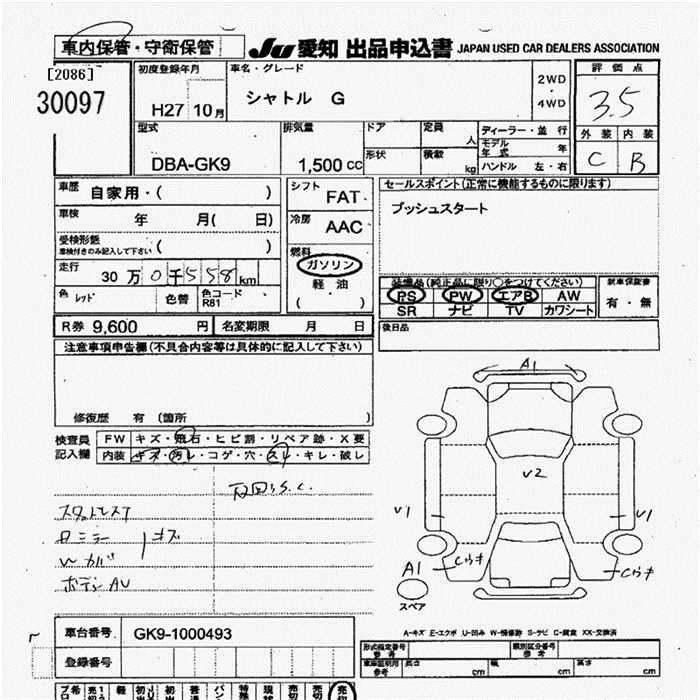 車内保管・守衛保管
Ju 愛知 出品申込書 JAPAN USED CAR DEALERS ASSOCIATION
[2086]
30097
初度登録年月
H27 10月
車名・グレード
シャトル G
2WD
・
4WD
評価点
3.5
外装 内装
C B
型式
DBA-GK9
排気量
1,500 cc
ドア
形状
定員
人
積載
kg
ディーラー・並行
モデル年式 年
ハンドル 左・右
車歴 自家用・( )
車検 年 月( 日)
受検形態
車検付きのみ記入して下さい ( )
走行 30万0千558km
色 レッド 色替 色コード R81
R券 9,600 円 名変期限 月 日
シフト FAT
冷房 AAC
燃料
ガソリン
・
軽油
( )
セールスポイント(正常に機能するものに限ります)
プッシュスタート
装備品(純正品に限り○をつけてください)
PS PW エアB AW
SR ナビ TV カワシート
新車保証書
有・無
後日品
注意事項申告欄(不具合内容等は具体的に記入して下さい)
修復歴 有(箇所 )
検査員記入欄
FW キズ・飛石・ヒビ割・リペア跡・X要
内装 キズ・汚レ・コゲ・穴・スレ・キレ・破レ
キズ
W カバ
A1
V2
V1
V1
A1
スペア
A-キズ E-エクボ U-凹み W-補修跡 S-サビ C-腐食 XX-交換済
車台番号 GK9-1000493
登録番号
形式指定番号
参考
類別区分番号
参考
車庫証明用
参考
長さ cm 幅 cm 高さ cm